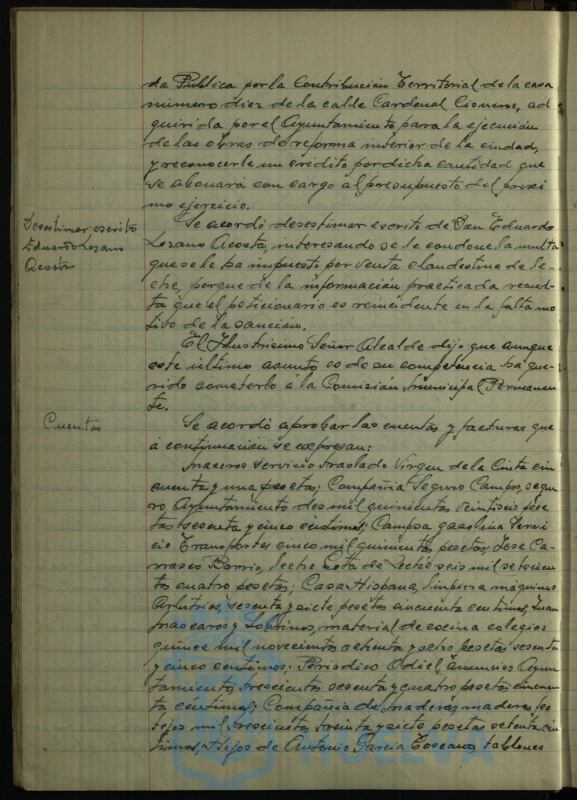 da Pública por la Contribución Territorial de la casa
número diez de la calle Cardenal Cisneros, ad
quirida por el Ayuntamiento para la ejecución
de las obras de reforma interior de la ciudad,
y reconocerle un crédito por dicha cantidad que
se abonará con cargo al presupuesto del próxi
mo ejercicio.
Desestimar escrito
Eduardo Lozano
Acosta
Se acordó desestimar escrito de Don Eduardo
Lozano Acosta, interesando se le condone la multa
que se le ha impuesto por venta clandestina de le-
che, porque de la información practicada resul-
ta que el peticionario es reincidente en la falta mo
tivo de la sanción.
El Ilustrísimo Señor Alcalde dijo que aunque
este último asunto es de su competencia ha que-
rido someterlo a la Comisión Municipal Permanen
te.
Cuentas
Se acordó aprobar las cuentas y facturas que
a continuación se expresan:
servicio traslado Virgen de la Cinta cin
cuenta y una pesetas; Compañía Seguro Campos, segu
ro Ayuntamiento dos mil quinientas veintiseis pese
tas sesenta y cinco céntimos; Campsa gasolina Servi
cio Transportes cinco mil quinientas pesetas; José Ca-
rrasco Barrio, leche Gota de Leche seis mil setecien
tas cuatro pesetas; Casa Hispana, limpieza máquinas
Arbitrios, sesenta y siete pesetas cincuenta céntimos, Juan
y Sobrinos, material de cocina colegios
quince mil novecientas setenta y ocho pesetas sesenta
y cinco céntimos; Periodico Odiel, anuncios Ayun
tamiento, trescientas sesenta y cuatro pesetas cincuen
ta céntimos; Compañía de maderas, maderas
mil trescientas treinta y siete pesetas setenta cén
timos, Hijos de Antonio García Toscano, tablones
HUELVA